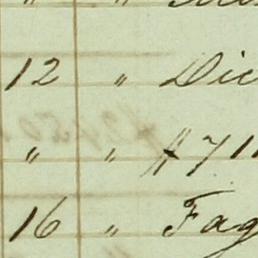 " "
12 " Dic
" " #711
16 " Fag